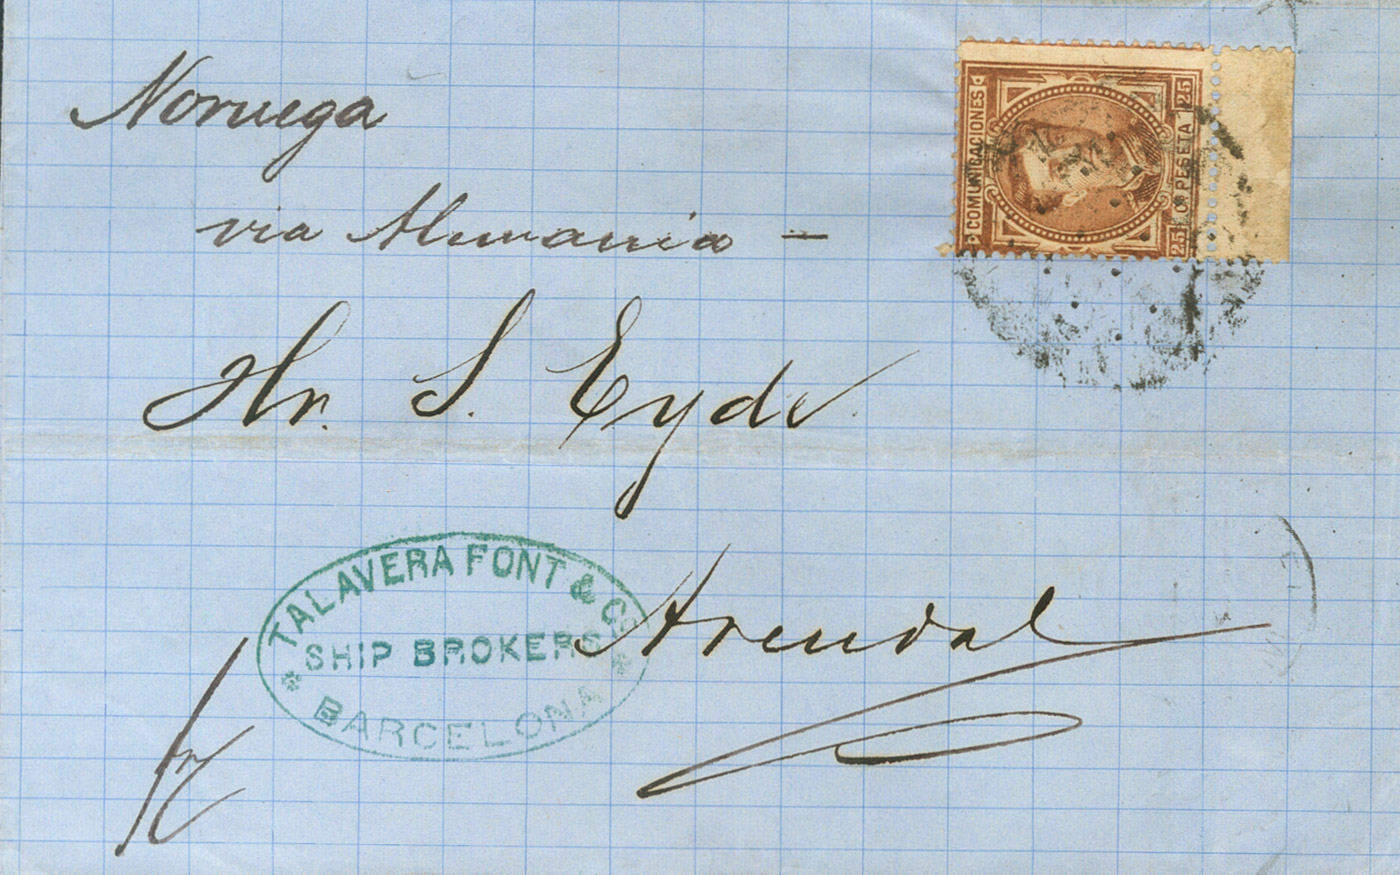 Noruega
via Alemania –
Hr. S. Eyde
Arendal
TALAVERA FONT & Cº
SHIP BROKERS
BARCELONA
COMUNICACIONES
25 Cs PESETA 25